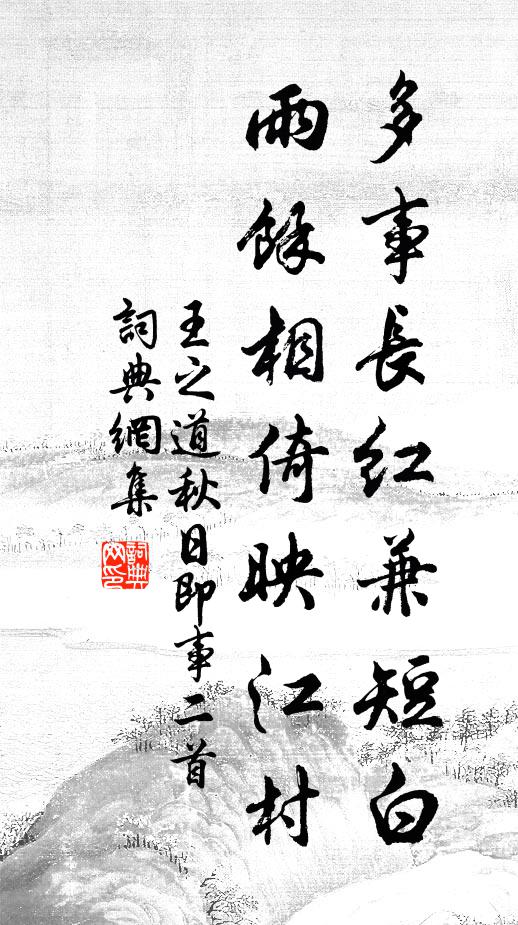 多事長紅兼短白
雨餘相倚映江村
王之道秋日即事二首
詞典網集
詞典網印